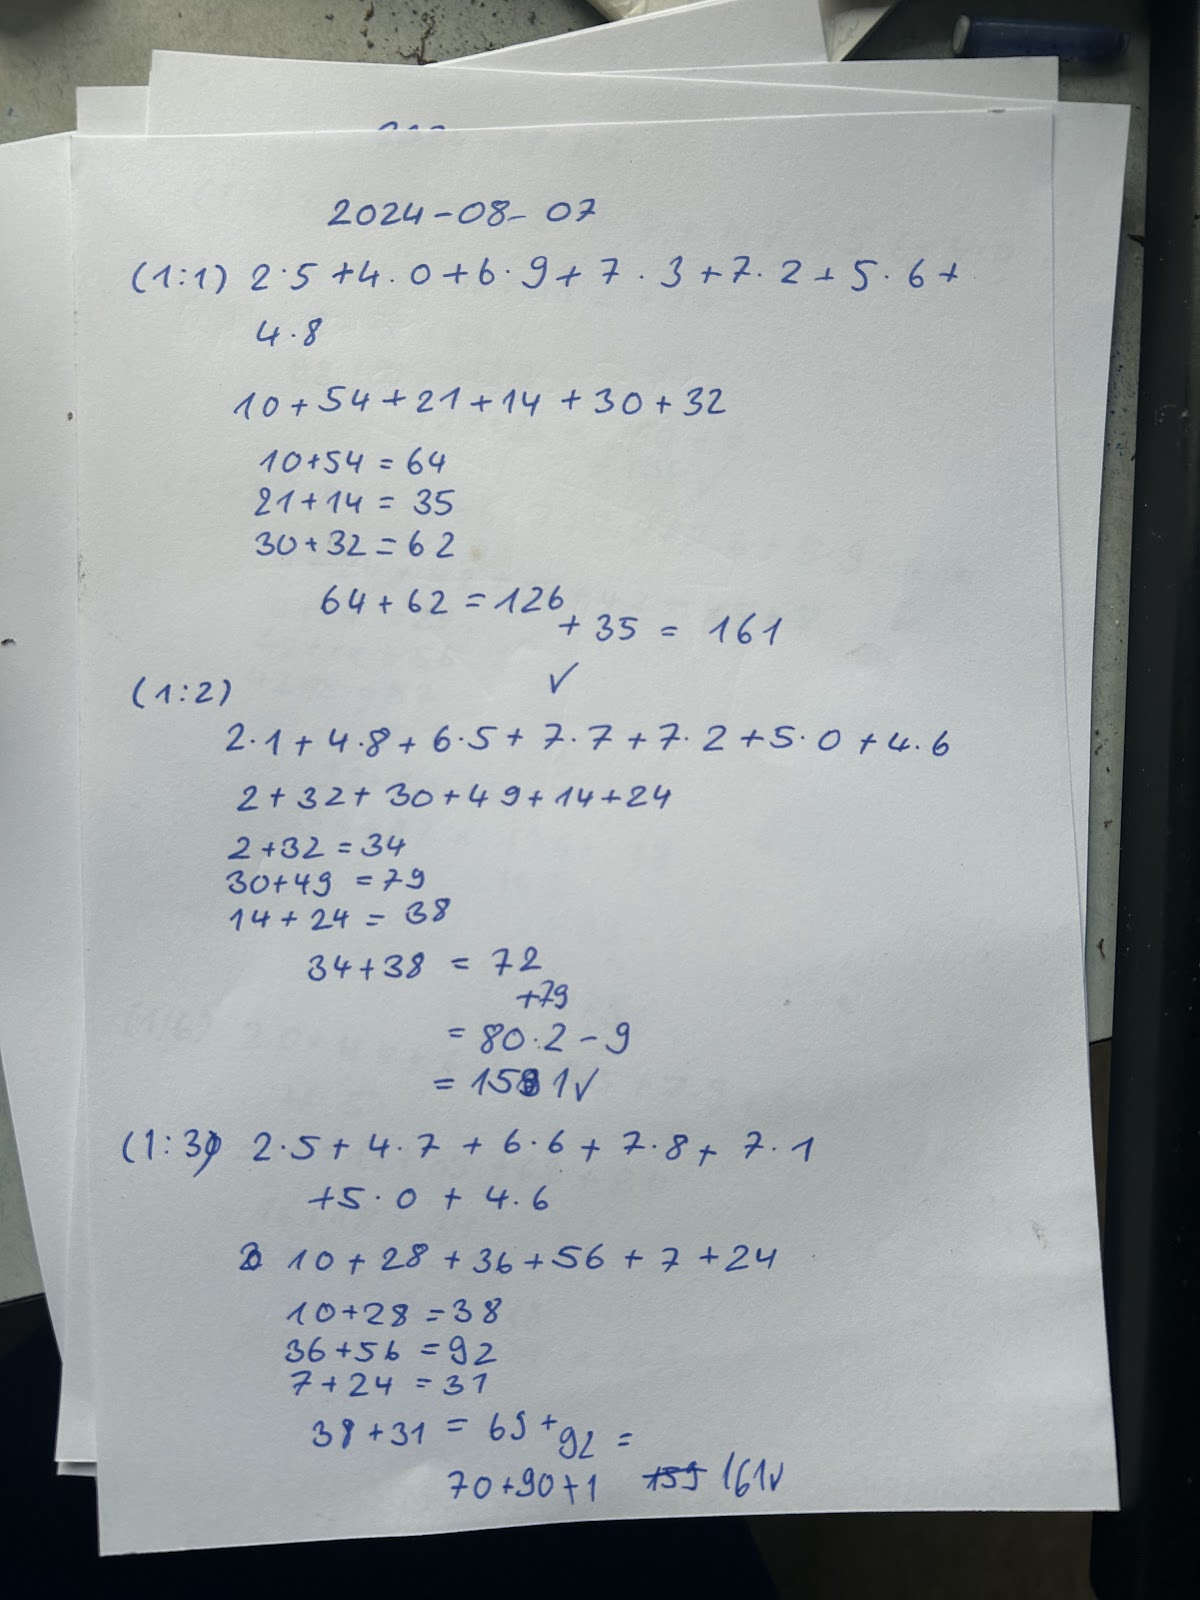 2024-08-07
(1:1) 2·5+4·0+6·9+7·3+7·2+5·6+
4·8
10+54+21+14+30+32
10+54=64
21+14=35
30+32=62
64+62=126
+35=161
✓
(1:2)
2·1+4·8+6·5+7·7+7·2+5·0+4·6
2+32+30+49+14+24
2+32=34
30+49=79
14+24=38
34+38=72
+79
=80·2-9
=151✓
(1:3) 2·5+4·7+6·6+7·8+7·1
+5·0+4·6
10+28+36+56+7+24
10+28=38
36+56=92
7+24=31
38+31=69+92=
70+90+1 159 161✓